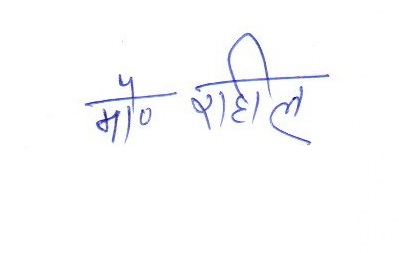 मो० राहील